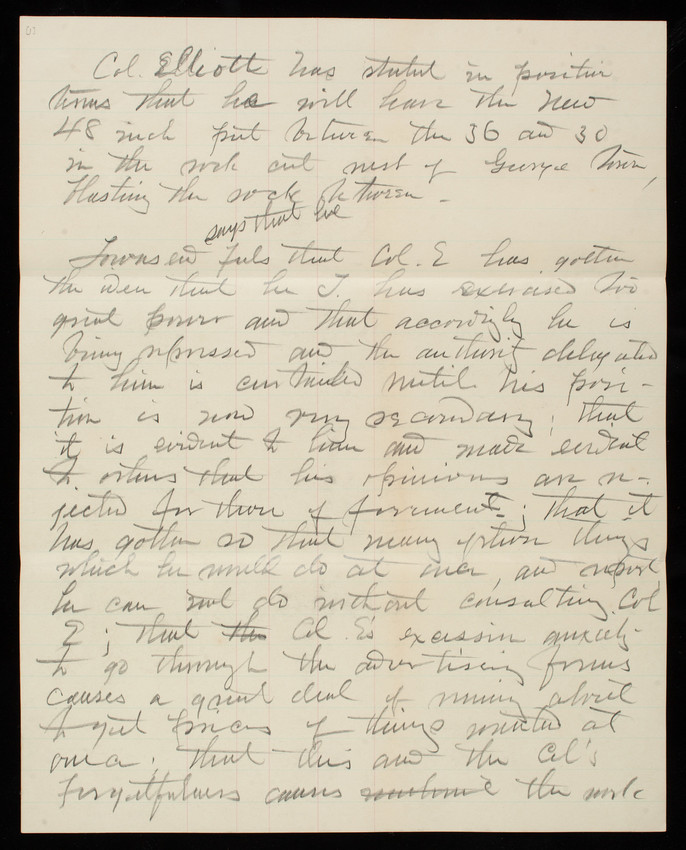 Col. Elliott has stated in positive
terms that he will have the new
48 inch put between the 36 and 30
in the rock cut west of George Town,
blasting the rock between.
says that he
Townsend feels that Col. E has gotten
the idea that he T. has exercised too
great power and that accordingly he is
being repressed and the authority delegated
to him is curtailed until his posi-
tion is now very secondary; that
it is evident to him and made evident
to others that his opinions are re-
jected for those of foremen; that it
has gotten so that many of those things
which he would do at once, and report,
he can not do without consulting Col
E; that the Col E's excessive anxiety
to go through the advertising forms
causes a great deal of running about
to get prices of things wanted at
once; that this and the Col's
forgetfulness causes the work